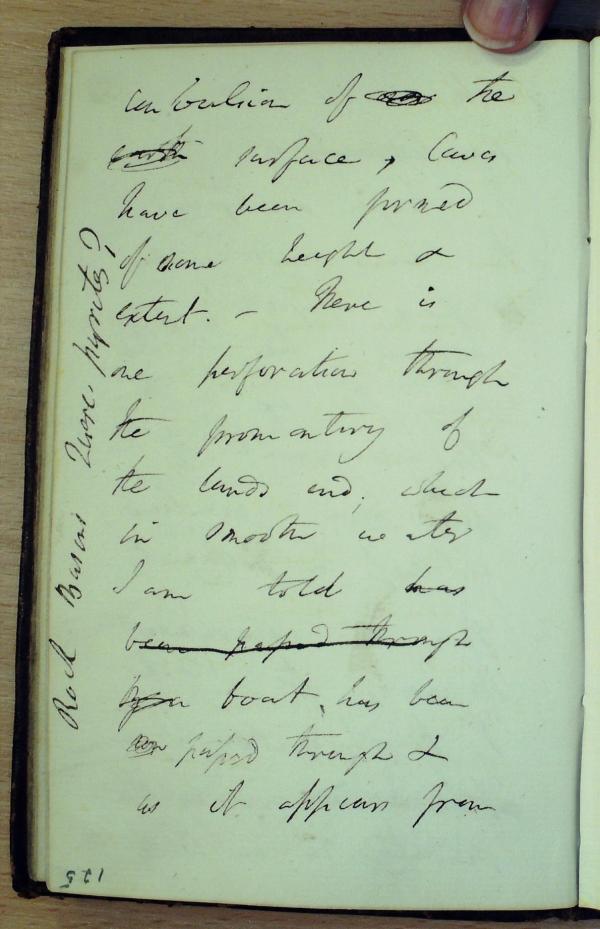 convulsion of the
earth surface, Caves
have been formed
of some height &
extent. - There is
one perforation through
the promontory of
the lands end; which
in smooth water
I am told has
been passed through
by a boat, has been
passed through &
as it appears from
Rock Basins Quere. pyrites?
125